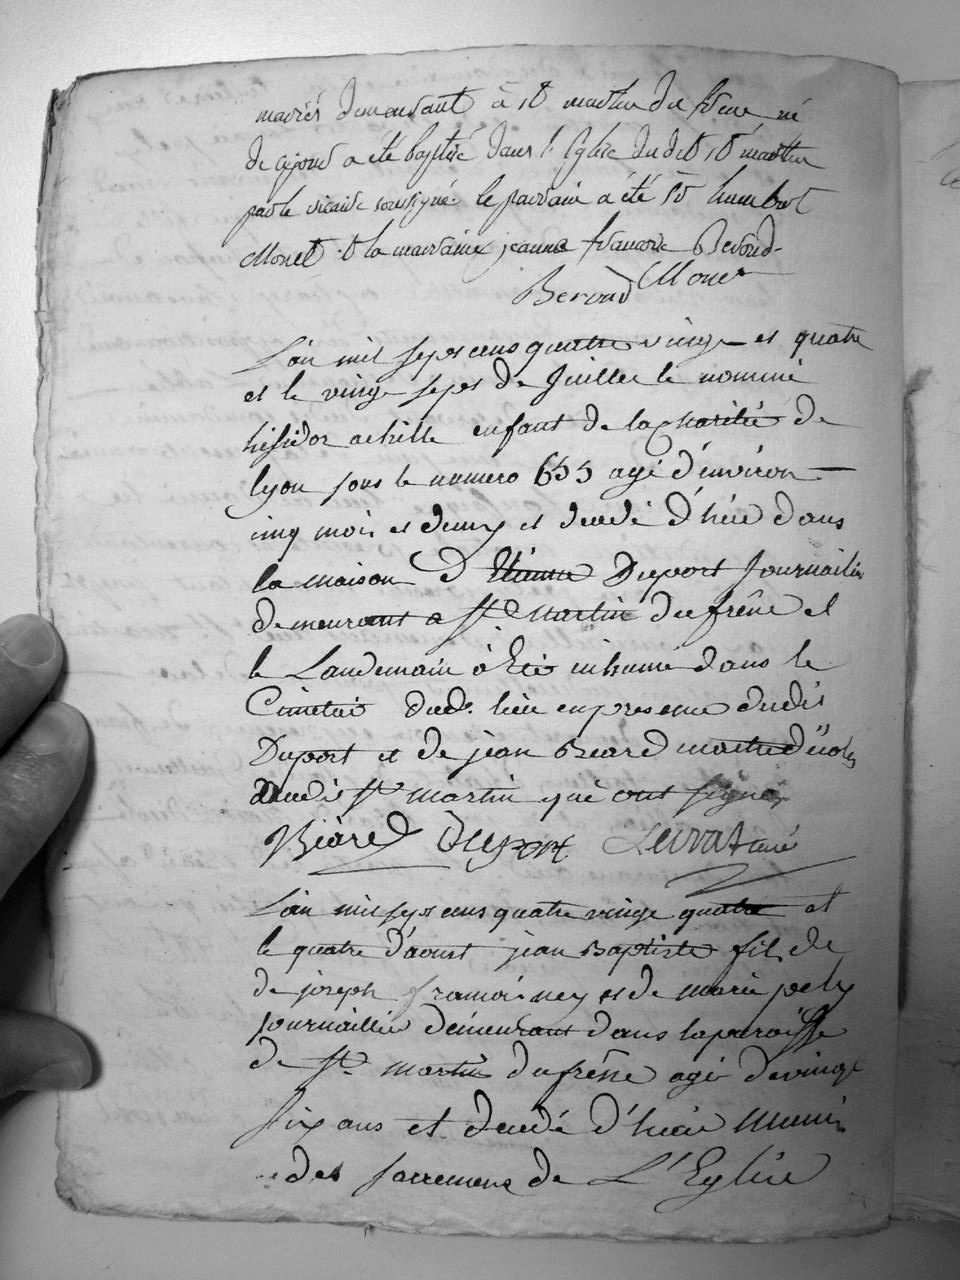 mariés demeurant à st martin du frene né
de cejour a été baptisé dans l Eglise du dit st martin
par le vicaire soussigné le parrain a été st humbert
Monet et la marraine jeanne francoise Beroud
Beroud Monet
L'an mil sept cens quattre vingt et quatre
et le vingt sept de Juillet le nommé
hisidor achille enfant de la Charitée de
lyon sous le numero 655 agé d'environ
cinq mois et demy et decedé d'hiér dans
la maison d'Etienne Duport Journailier
demeurant a St Martin du frêne et
le Landemain à été inhumé dans le
Cimetier dud. lieu en presence dudit
Duport et de jean Biard maitre d'école
dudit St martin qui ont signé
Biard Duport curé
L'an mil sept cens quatre vingt quatre et
le quatre d'aoust jean Baptiste fils de
de joseph francois ney et de marie pely
journaillier demeurant dans la paroisse
de St martin du frêne agé de vingt
six ans et decedé d'hiér muni
des sacremens de L'Eglise